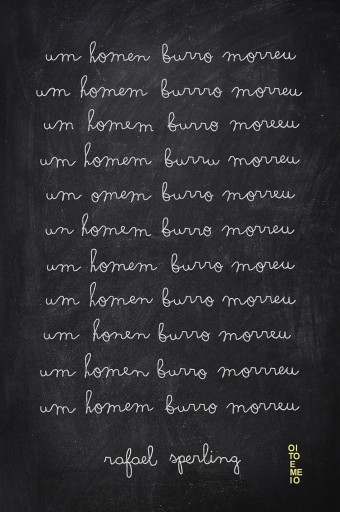 um homen burro morreu
um homem burrro morreu
um homem burro moreeu
um homem burru morreu
um omem burro morreu
un homem burro morreu
um homem burro moreu
um homen burro morreu
um honen burro morreu
um homen burro morreu
um homem burro morreu
rafael sperling
OI
TO
E
ME
IO